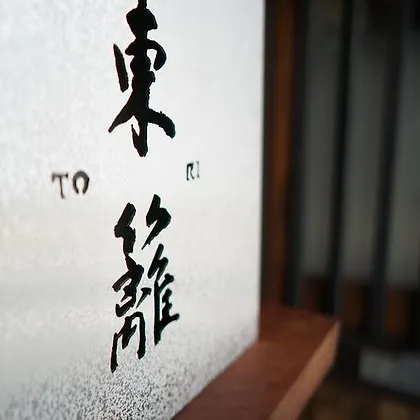 東
TO RI
籬